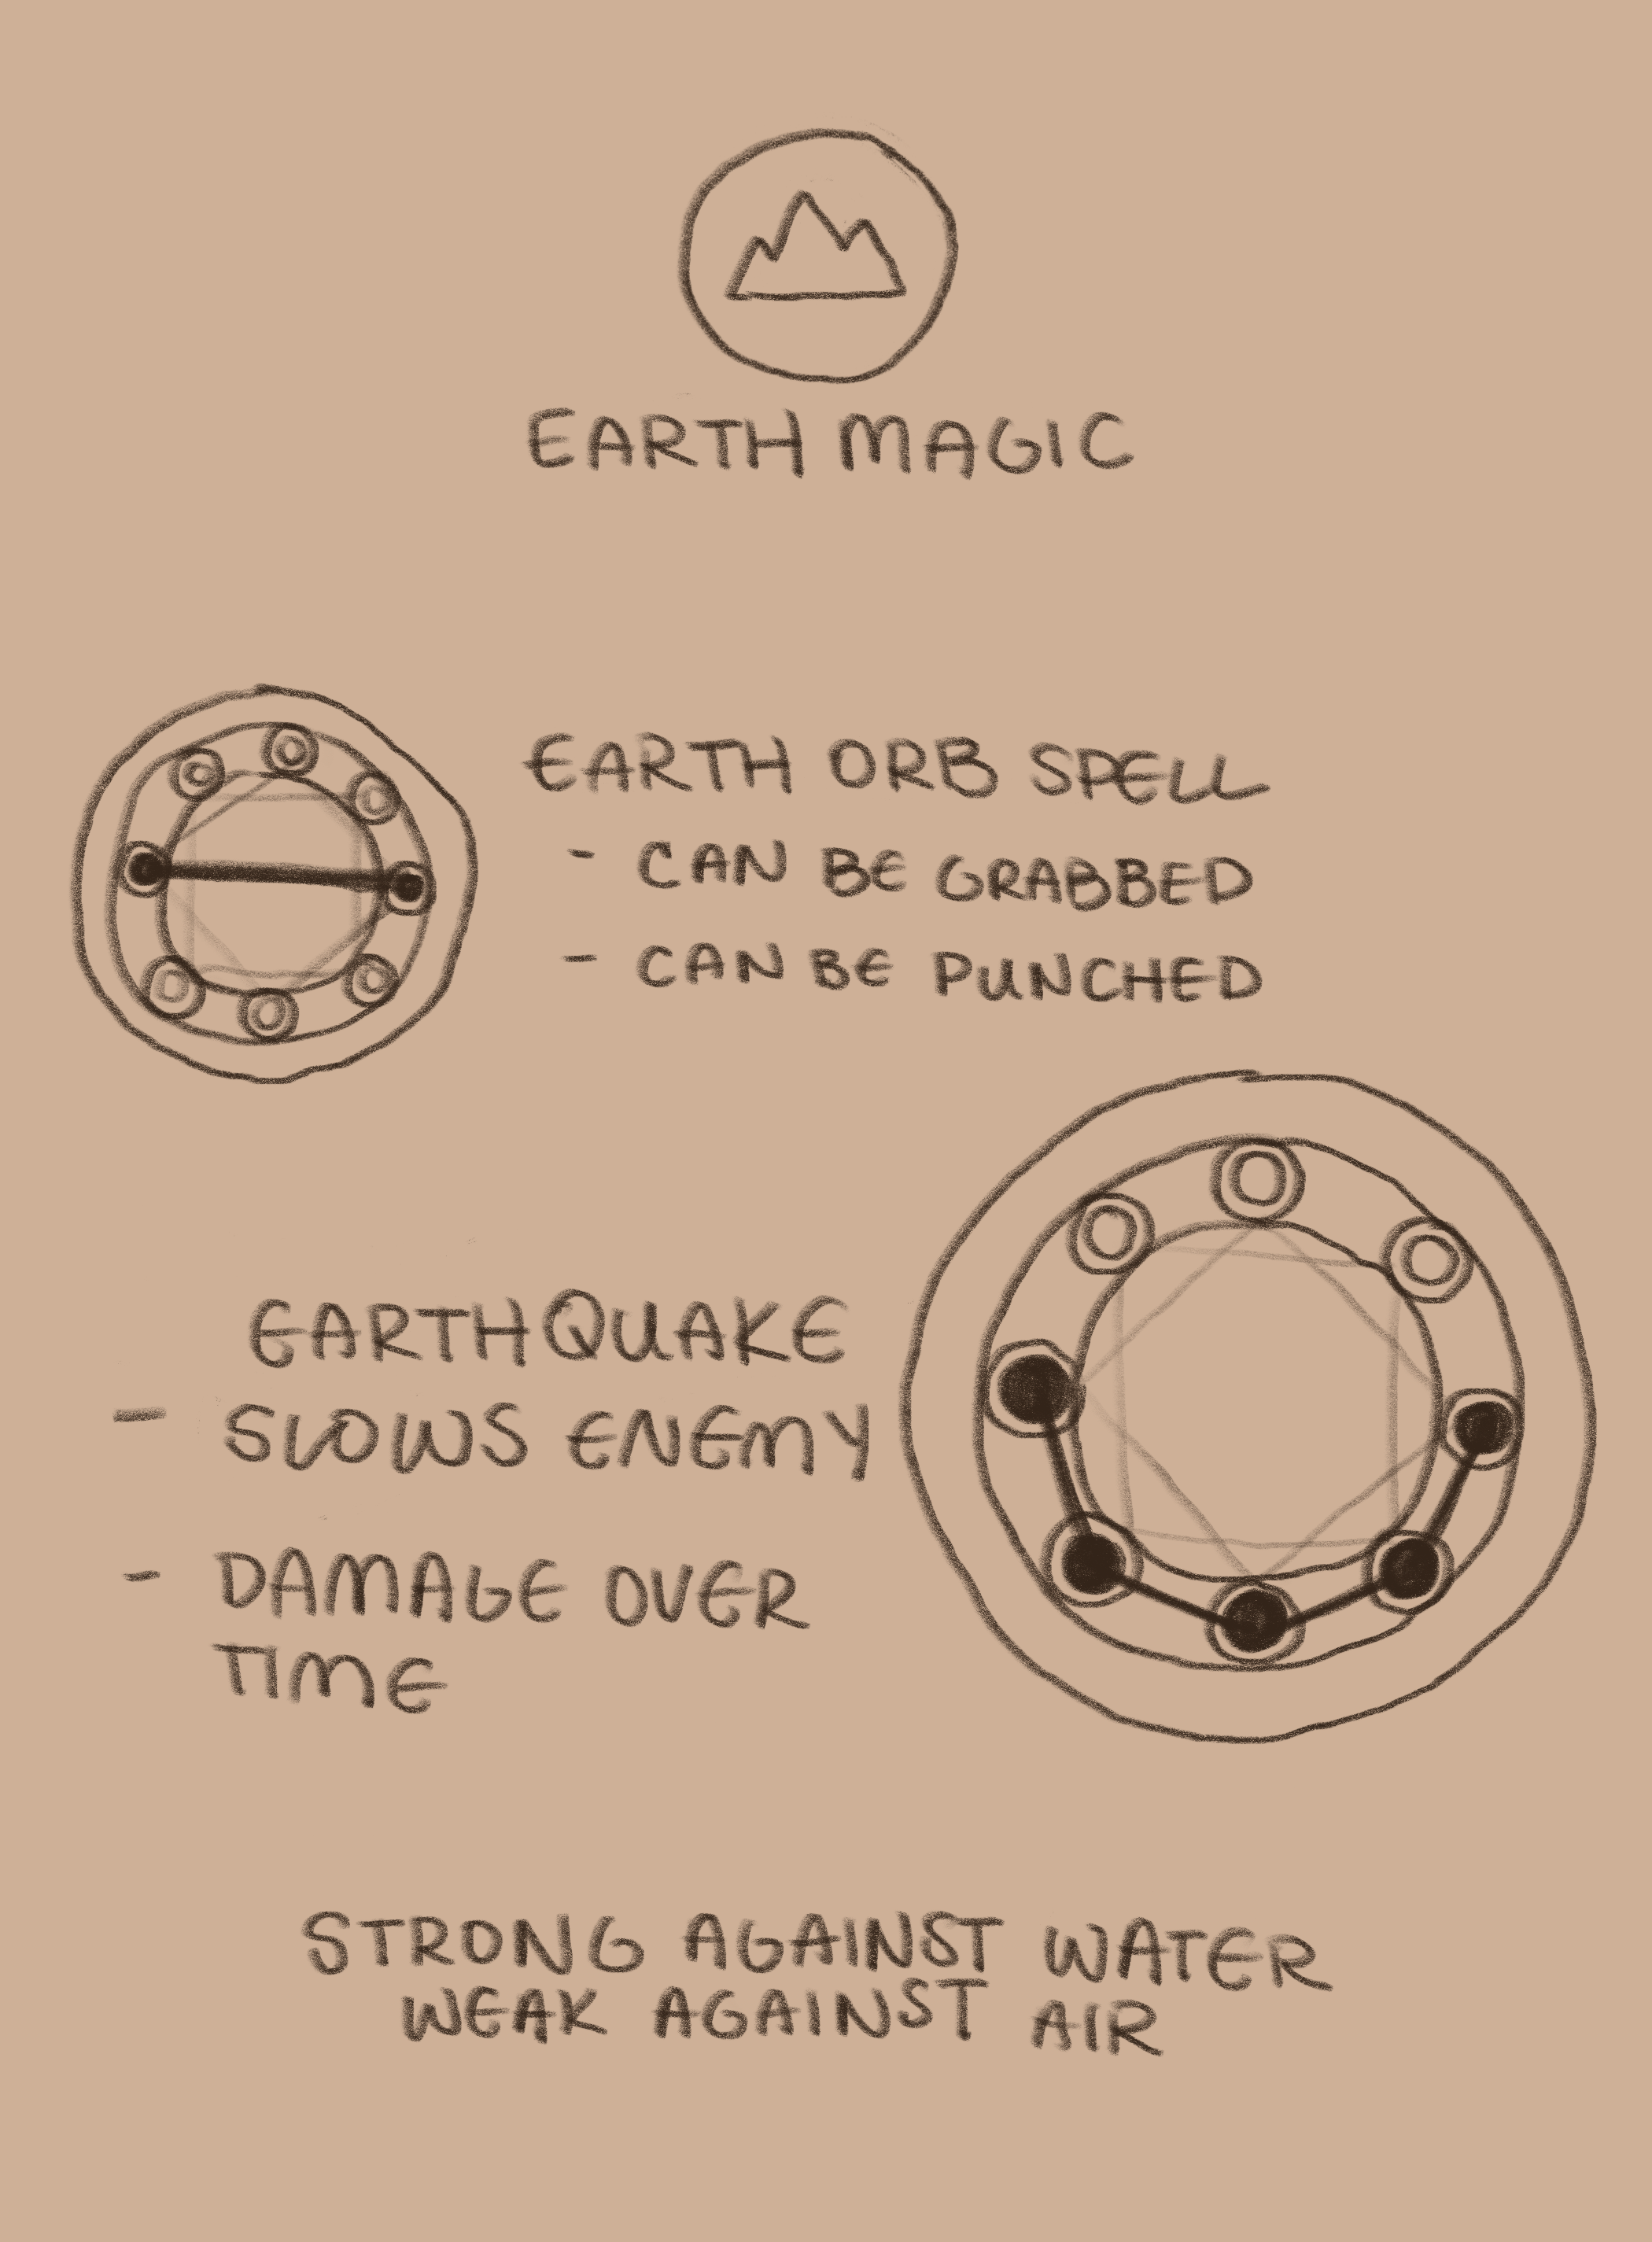 EARTH MAGIC
EARTH ORB SPELL
- CAN BE GRABBED
- CAN BE PUNCHED
EARTHQUAKE
- SLOWS ENEMY
- DAMAGE OVER
TIME
STRONG AGAINST WATER
WEAK AGAINST AIR